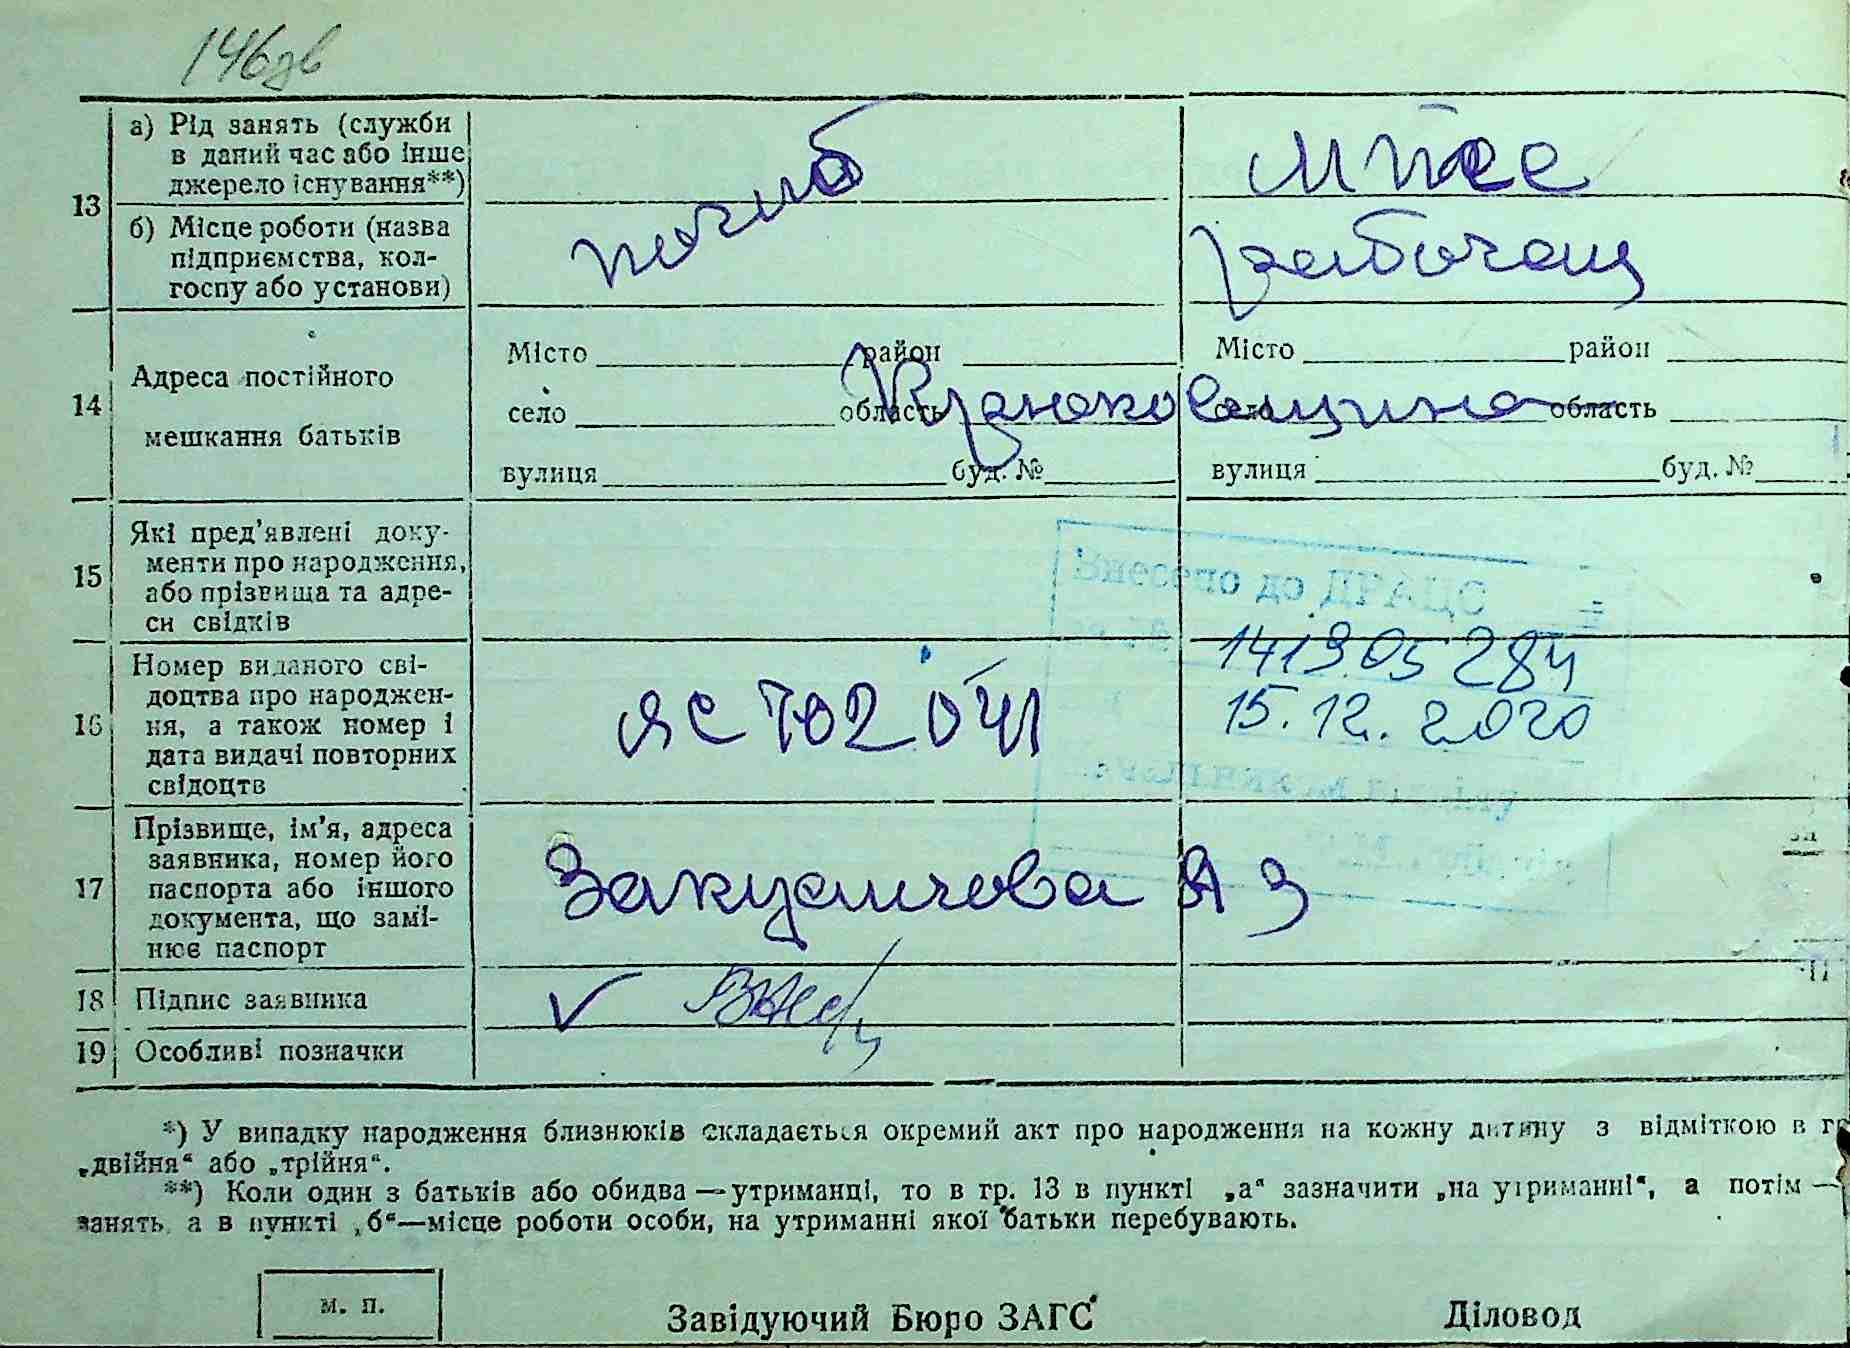 146дв
13
а) Рід занять (служби
в даний час або інше
джерело існування**)
погиб
МТСС
б) Місце роботи (назва
підприємства, кол-
госпу або установи)
14
Адреса постійного
мешкання батьків
Місто район
село область
вулиця буд. №
Місто район
село область
вулиця буд. №
15
Які пред'явлені доку-
менти про народження,
або прізвища та адре-
си свідків
Внесено до ДРАЦС
16
Номер виданого сві-
доцтва про народжен-
ня, а також номер і
дата видачі повторних
свідоцтв
ЯС 702041
141905284
15.12.2020
17
Прізвище, ім'я, адреса
заявника, номер його
паспорта або іншого
документа, що замі-
нює паспорт
А З
18 Підпис заявника
19 Особливі позначки
*) У випадку народження близнюків складається окремий акт про народження на кожну дитину з відміткою в
„двійня“ або „трійня“.
**) Коли один з батьків або обидва — утриманці, то в гр. 13 в пункті „а“ зазначити „на утриманні“, а потім —
занять, а в пункті „б“—місце роботи особи, на утриманні якої батьки перебувають.
м. п.
Завідуючий Бюро ЗАГС
Діловод